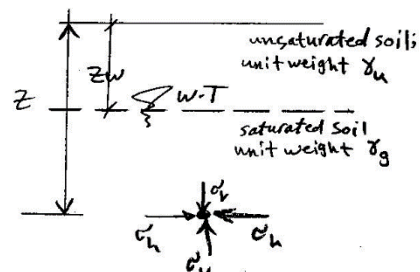 unsaturated soil;
unit weight γu
Zw
Z
W.T
saturated soil
unit weight γg
σv
σh
σh
σv